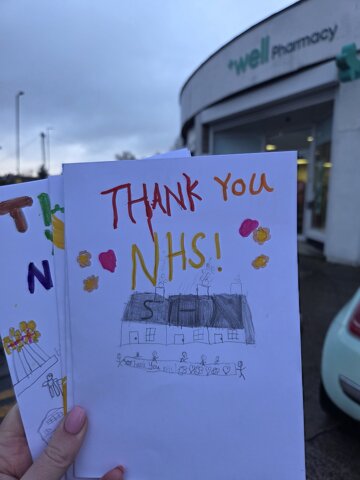 well Pharmacy
THANK YOU
NHS!
T
N